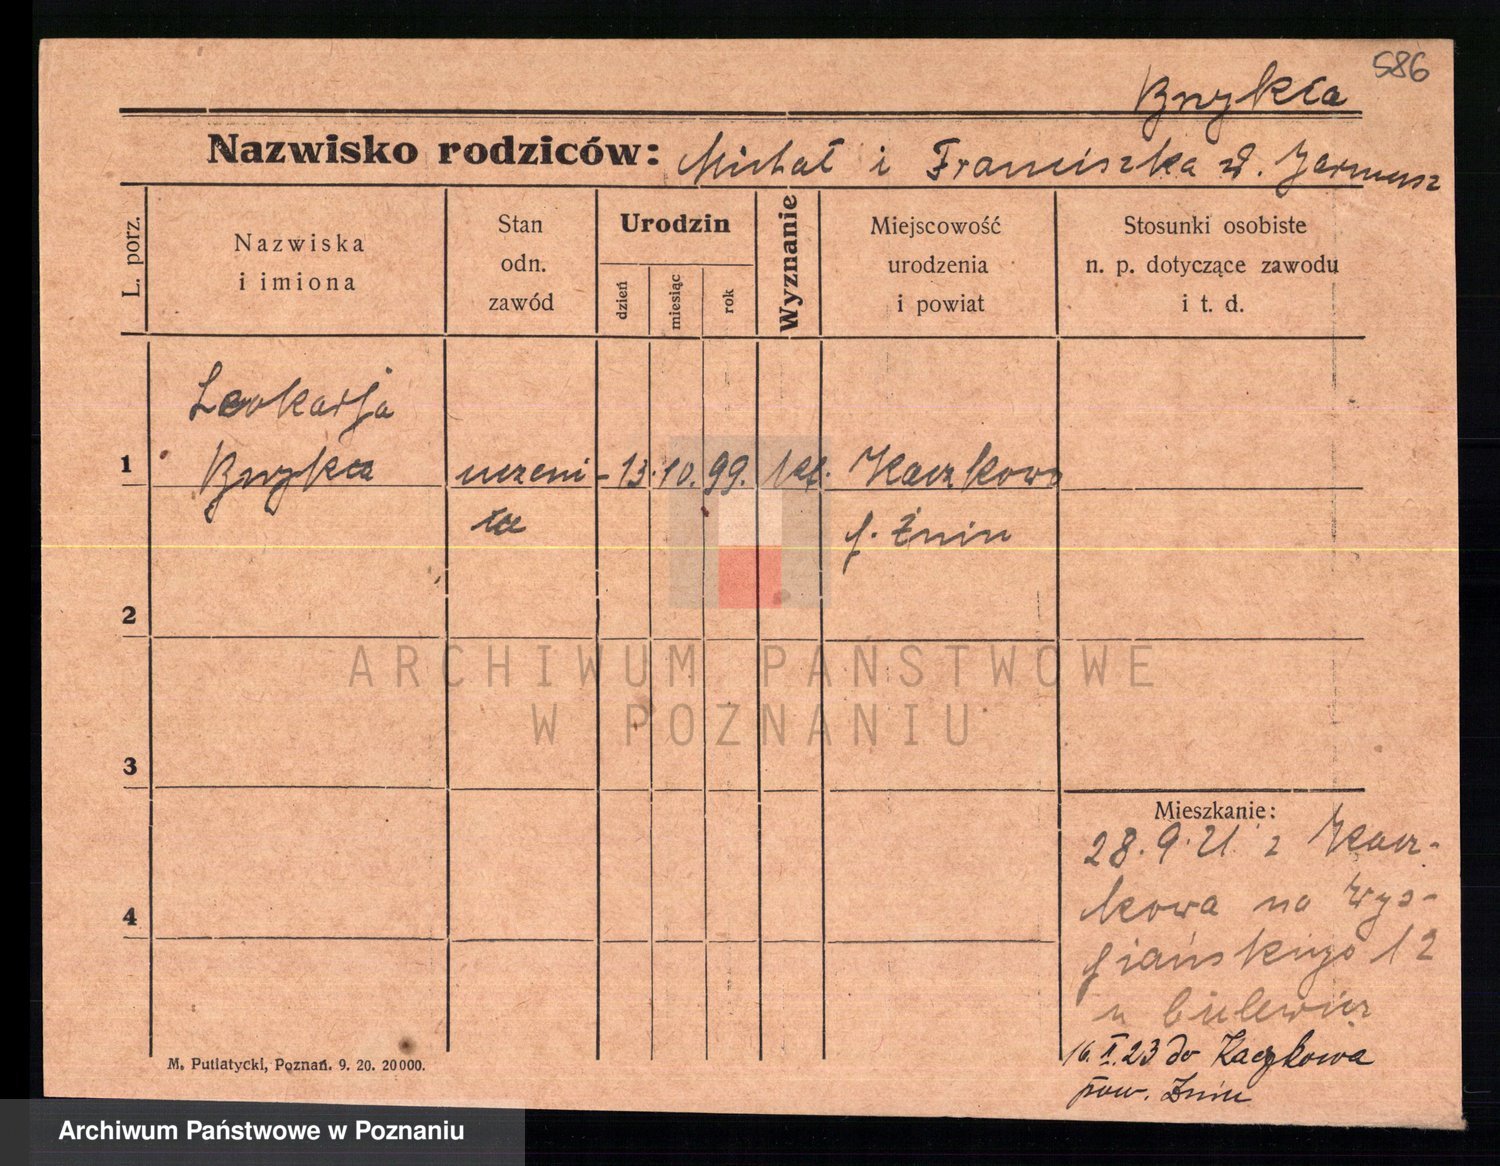 586
Brykta
Nazwisko rodziców: Michał i Franciszka zd. Jarmusz
L. porz.
Nazwiska
i imiona
Stan
odn.
zawód
Urodzin
dzień
miesiąc
rok
Wyznanie
Miejscowość
urodzenia
i powiat
Stosunki osobiste
n. p. dotyczące zawodu
i t. d.
Leokadja
1 uczeni- 13. 10. 99. kt. Kaczkowo
ca p. Żnin
2
ARCHIWUM PAŃSTWOWE
W POZNANIU
3
Mieszkanie:
28. 9. 21. z Kacz-
kowa na Wys-
piańskiego 12
u
4
16. II. 23 do Kaczkowa
pow. Żnin
M. Putiatycki, Poznań. 9. 20. 20000.
Archiwum Państwowe w Poznaniu